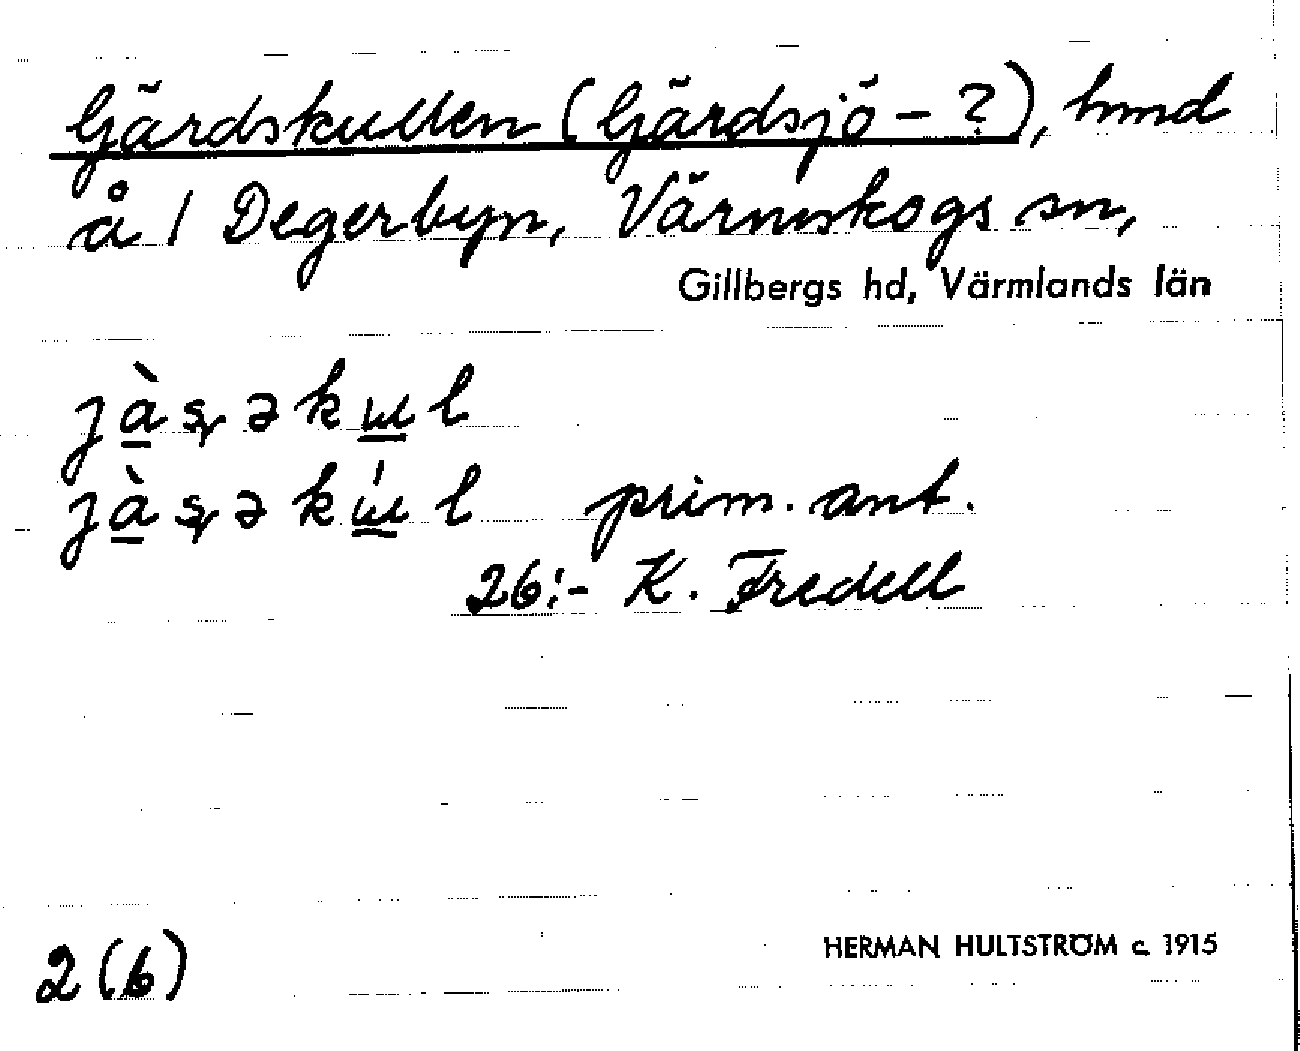 Gjärdskullen (Gjärdsjö-?), hmd
å 1 Degerbyn, Värmskogs sn,
Gillbergs hd, Värmlands län
prim. ant.
26:- K. Fredell
2(6)
HERMAN HULTSTRÖM c. 1915